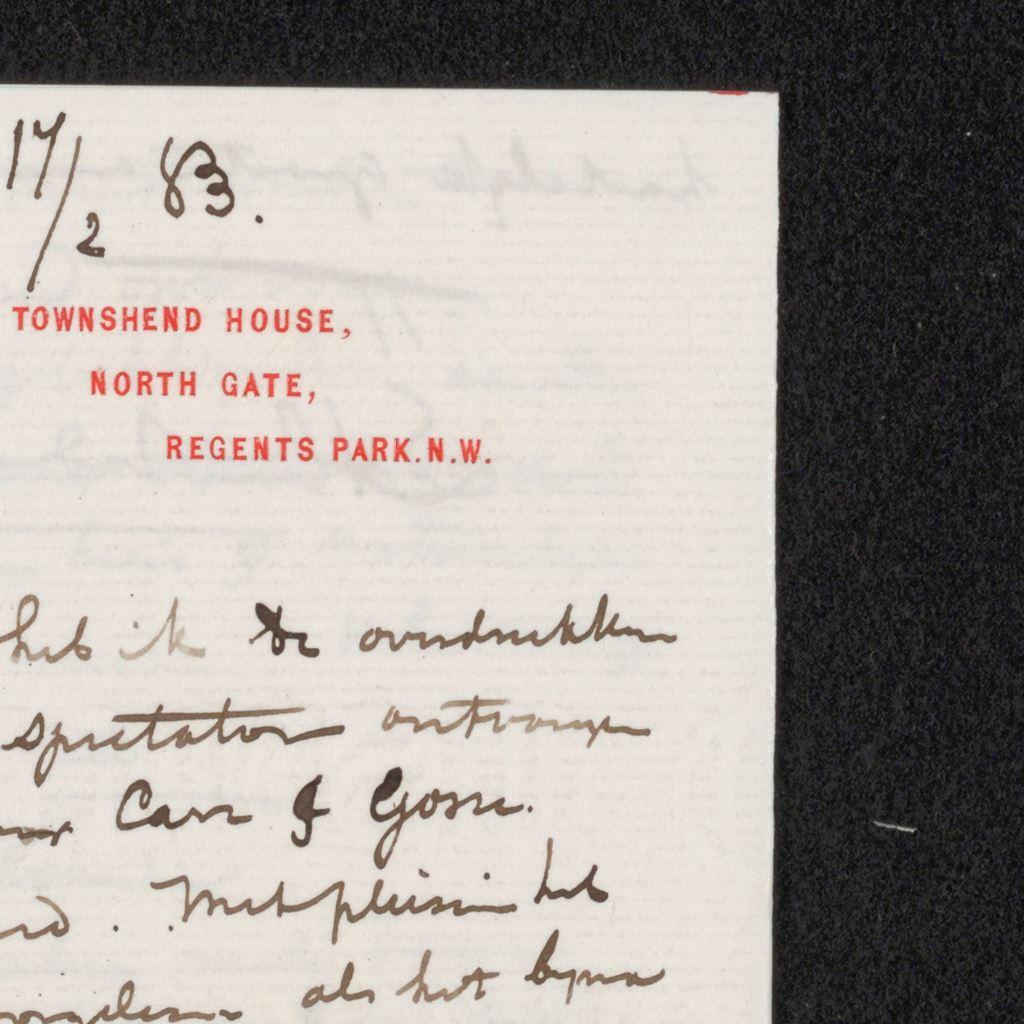 17/2 83.
TOWNSHEND HOUSE,
NORTH GATE,
REGENTS PARK.N.W.
heb ik de overdrukken
spectator ontvangen
Carr & Gosse.
Met plezier heb
als het byna